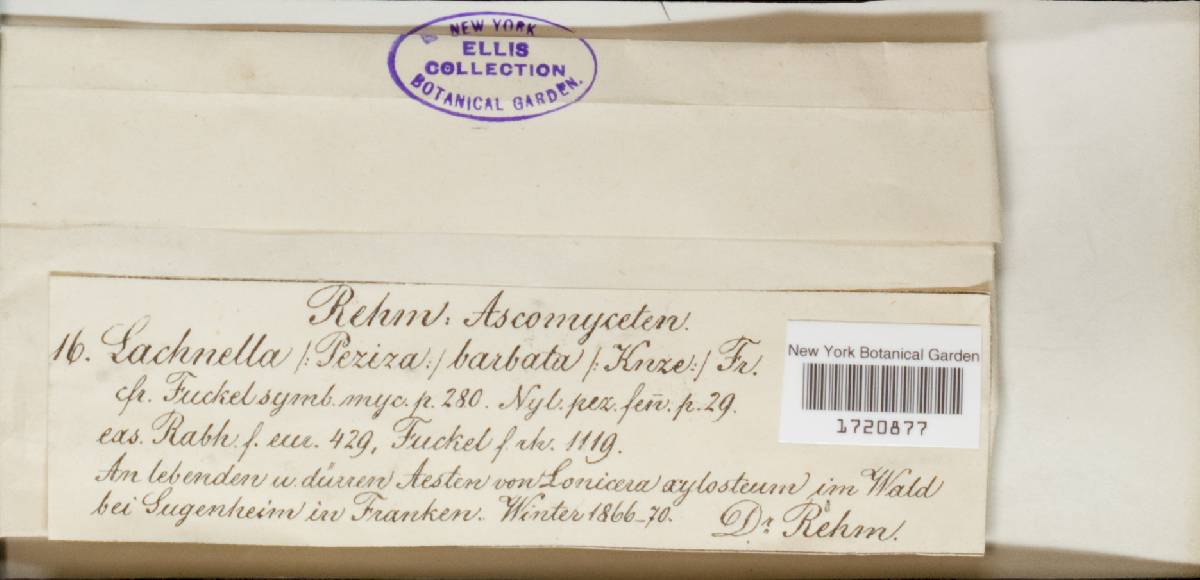 NEW YORK
ELLIS
COLLECTION
BOTANICAL GARDEN.
Rehm: Ascomyceten.
16. Lachnella /: Peziza :/ barbata /: Knze :/ Fr.
cfr. Fuckel symb. myc. p. 280. Nyl. pez. fen̄. p. 29.
exs. Rabh. f. eur. 429, Fuckel f. rh. 1119.
An lebenden u. dürren Aesten von Lonicera xylosteum im Wald
bei Sugenheim in Franken. Winter 1866-70. Dr. Rehm.
New York Botanical Garden
1720877